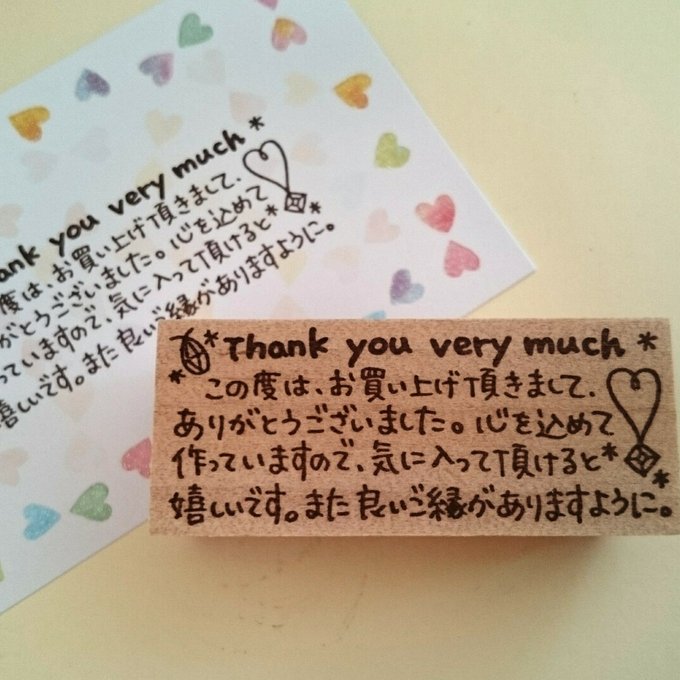 Thank you very much
この度は、お買い上げ頂きまして、
ありがとうございました。心を込めて
作っていますので、気に入って頂けると
嬉しいです。また良いご縁がありますように。
ank you very much
度は、お買い上げ頂きまして、
がとうございました。心を込めて
っていますので、気に入って頂けると
嬉しいです。また良いご縁がありますように。